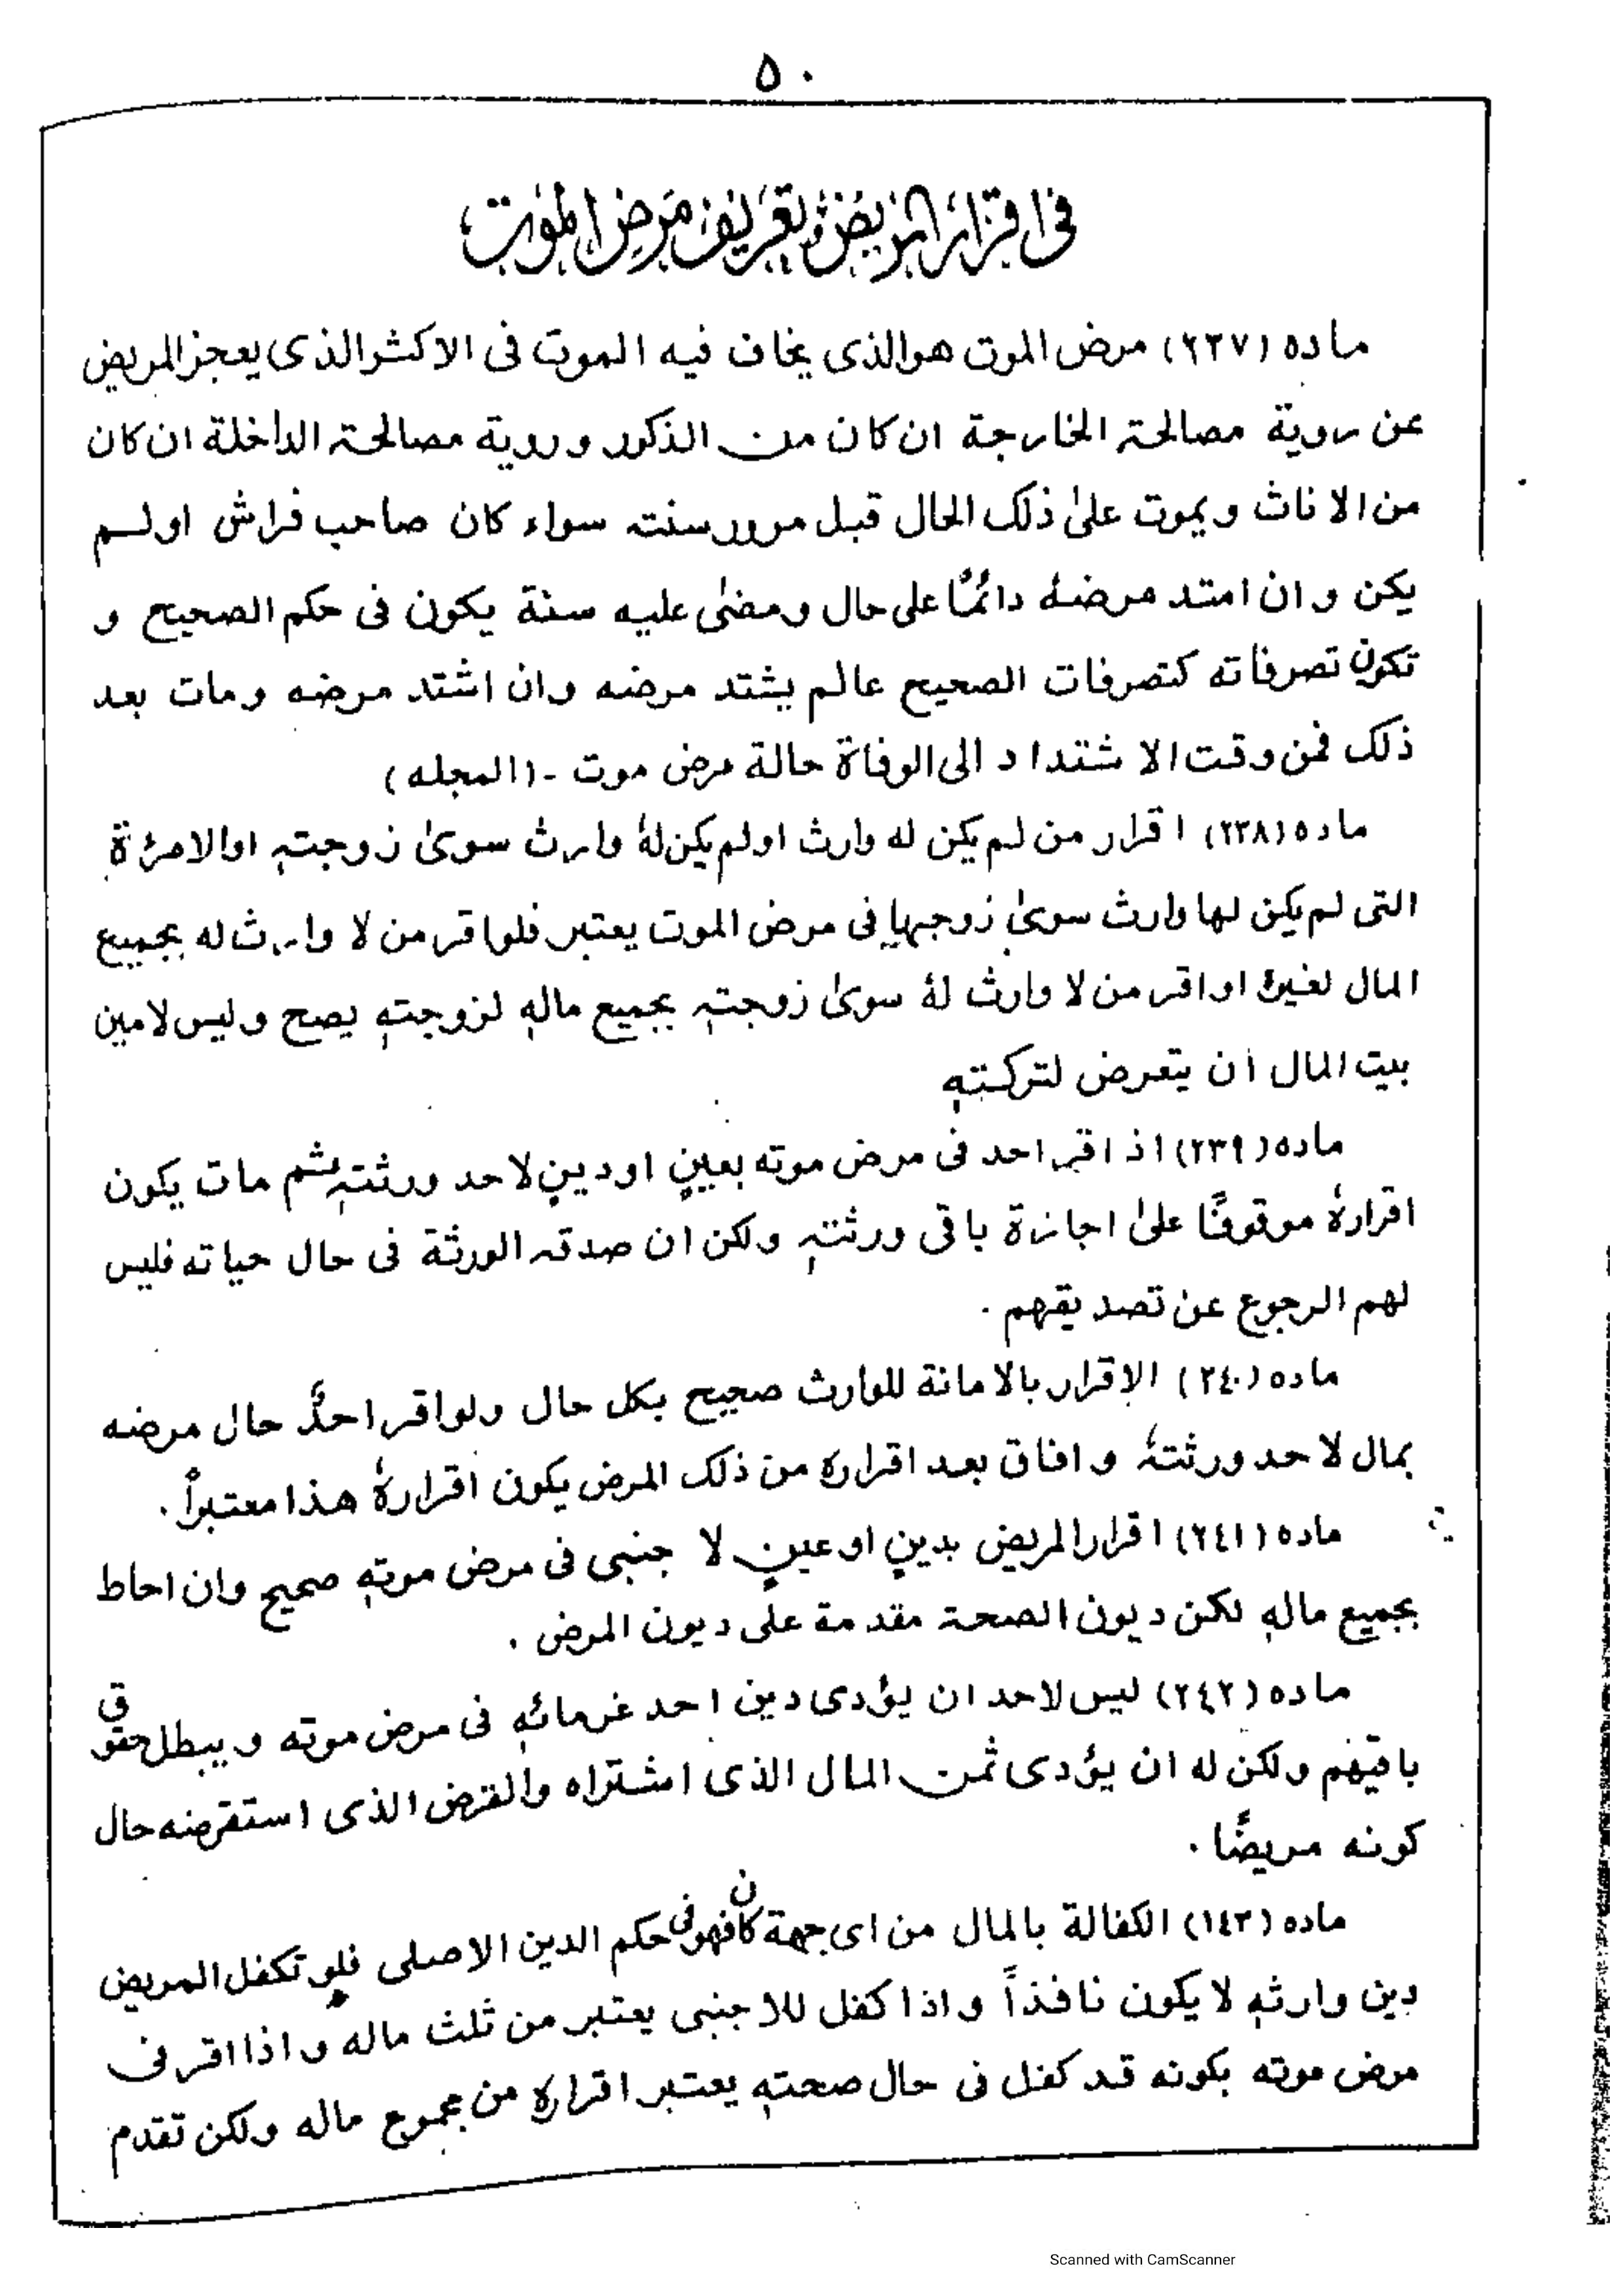 ۵۰
فی اقرار المریض وتعریف مرض الموت
مادہ (۲۳۷) مرض الموت هوالذی یخاف فیه الموت فی الاکثرالذی یعجزالمریض
عن رویة مصالحہ الخارجة ان کان من الذکور و رویة مصالحہ الداخلة ان کان
من الاناث و یموت علیٰ ذلک الحال قبل مرور سنتہ سواء کان صاحب فراش اولم
یکن و ان امتد مرضہٗ دائمًا علی حال ومضیٰ علیه سنة یکون فی حکم الصحیح و
تکون تصرفاته کتصرفات الصحیح عالم یشتد مرضه وان اشتد مرضه ومات بعد
ذلک فمن وقت الاشتداد الی الوفاة حالة مرض موت ۔ (المجله)
مادہ (۲۳۸) اقرار من لم یکن له وارث اولم یکن لهٗ وارث سویٰ زوجتہٖ اوالامرٔة
التی لم یکن لها وارث سویٰ زوجها فی مرض الموت یعتبر فلواقر من لا وارث له بجمیع
المال لغیرهٖ اواقر من لا وارث لهٗ سویٰ زوجتہٖ بجمیع مالهٖ لزوجتهٖ یصح ولیس لامین
بیت المال ان یتعرض لترکتهٖ
مادہ (۲۳۹) اذ اقر احد فی مرض موته بعینٍ اودینٍ لاحد ورثتہٖ ثم مات یکون
اقرارهٗ موقوفًا علیٰ اجازة باقی ورثتہٖ ولکن ان صدقہ الورثة فی حال حیاته فلیس
لهم الرجوع عن تصدیقهم ۔
مادہ (۲٤۰) الاقرار بالامانة للوارث صحیح بکل حال ولواقر احدٌ حال مرضه
بمال لاحد ورثتہٗ و افاق بعد اقرارہ من ذلک المرض یکون اقرارهٗ هذا معتبراً ۔
مادہ (۲٤۱) اقرار المریض بدینٍ اوعینٍ لا جنبی فی مرض موتهٖ صحیح وان احاط
بجمیع مالهٖ لکن دیون الصحة مقدمة علی دیون المرض ۔
مادہ (۲٤۲) لیس لاحد ان یؤدی دین احد غرمائهٖ فی مرض موته ویبطل حقوق
باقیهم ولکن له ان یؤدی ثمن المال الذی اشتراه والقرض الذی استقرضه حال
کونه مریضًا ۔
مادہ (۱٤۳) الکفالة بالمال من ای جهة کان فهو فی حکم الدین الاصلی فلو تکفل المریض
دین وارثهٖ لا یکون نافذاً و اذا کفل للاجنبی یعتبر من ثلث ماله و اذا اقر فی
مرض موته بکونه قد کفل فی حال صحتهٖ یعتبر اقرارہ من مجموع ماله ولکن تقدم
Scanned with CamScanner